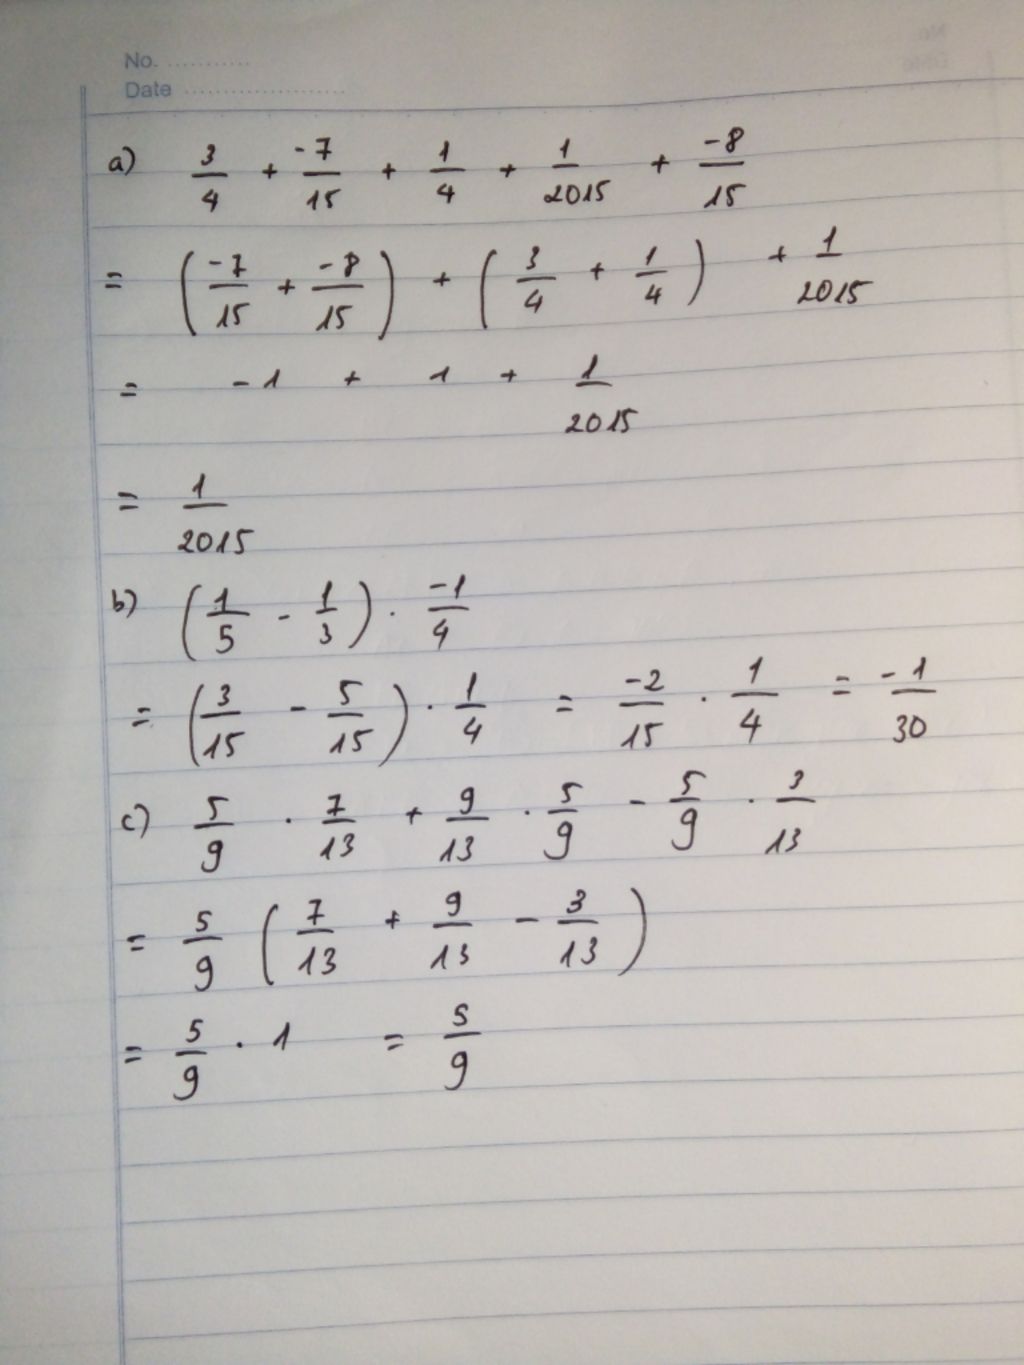 No. ...........
Date .....................
a) 3/4 + -7/15 + 1/4 + 1/2015 + -8/15
= (-7/15 + -8/15) + (3/4 + 1/4) + 1/2015
= -1 + 1 + 1/2015
= 1/2015
b) (1/5 - 1/3) . -1/4
= (3/15 - 5/15) . 1/4 = -2/15 . 1/4 = -1/30
c) 5/9 . 7/13 + 9/13 . 5/9 - 5/9 . 3/13
= 5/9 (7/13 + 9/13 - 3/13)
= 5/9 . 1 = 5/9